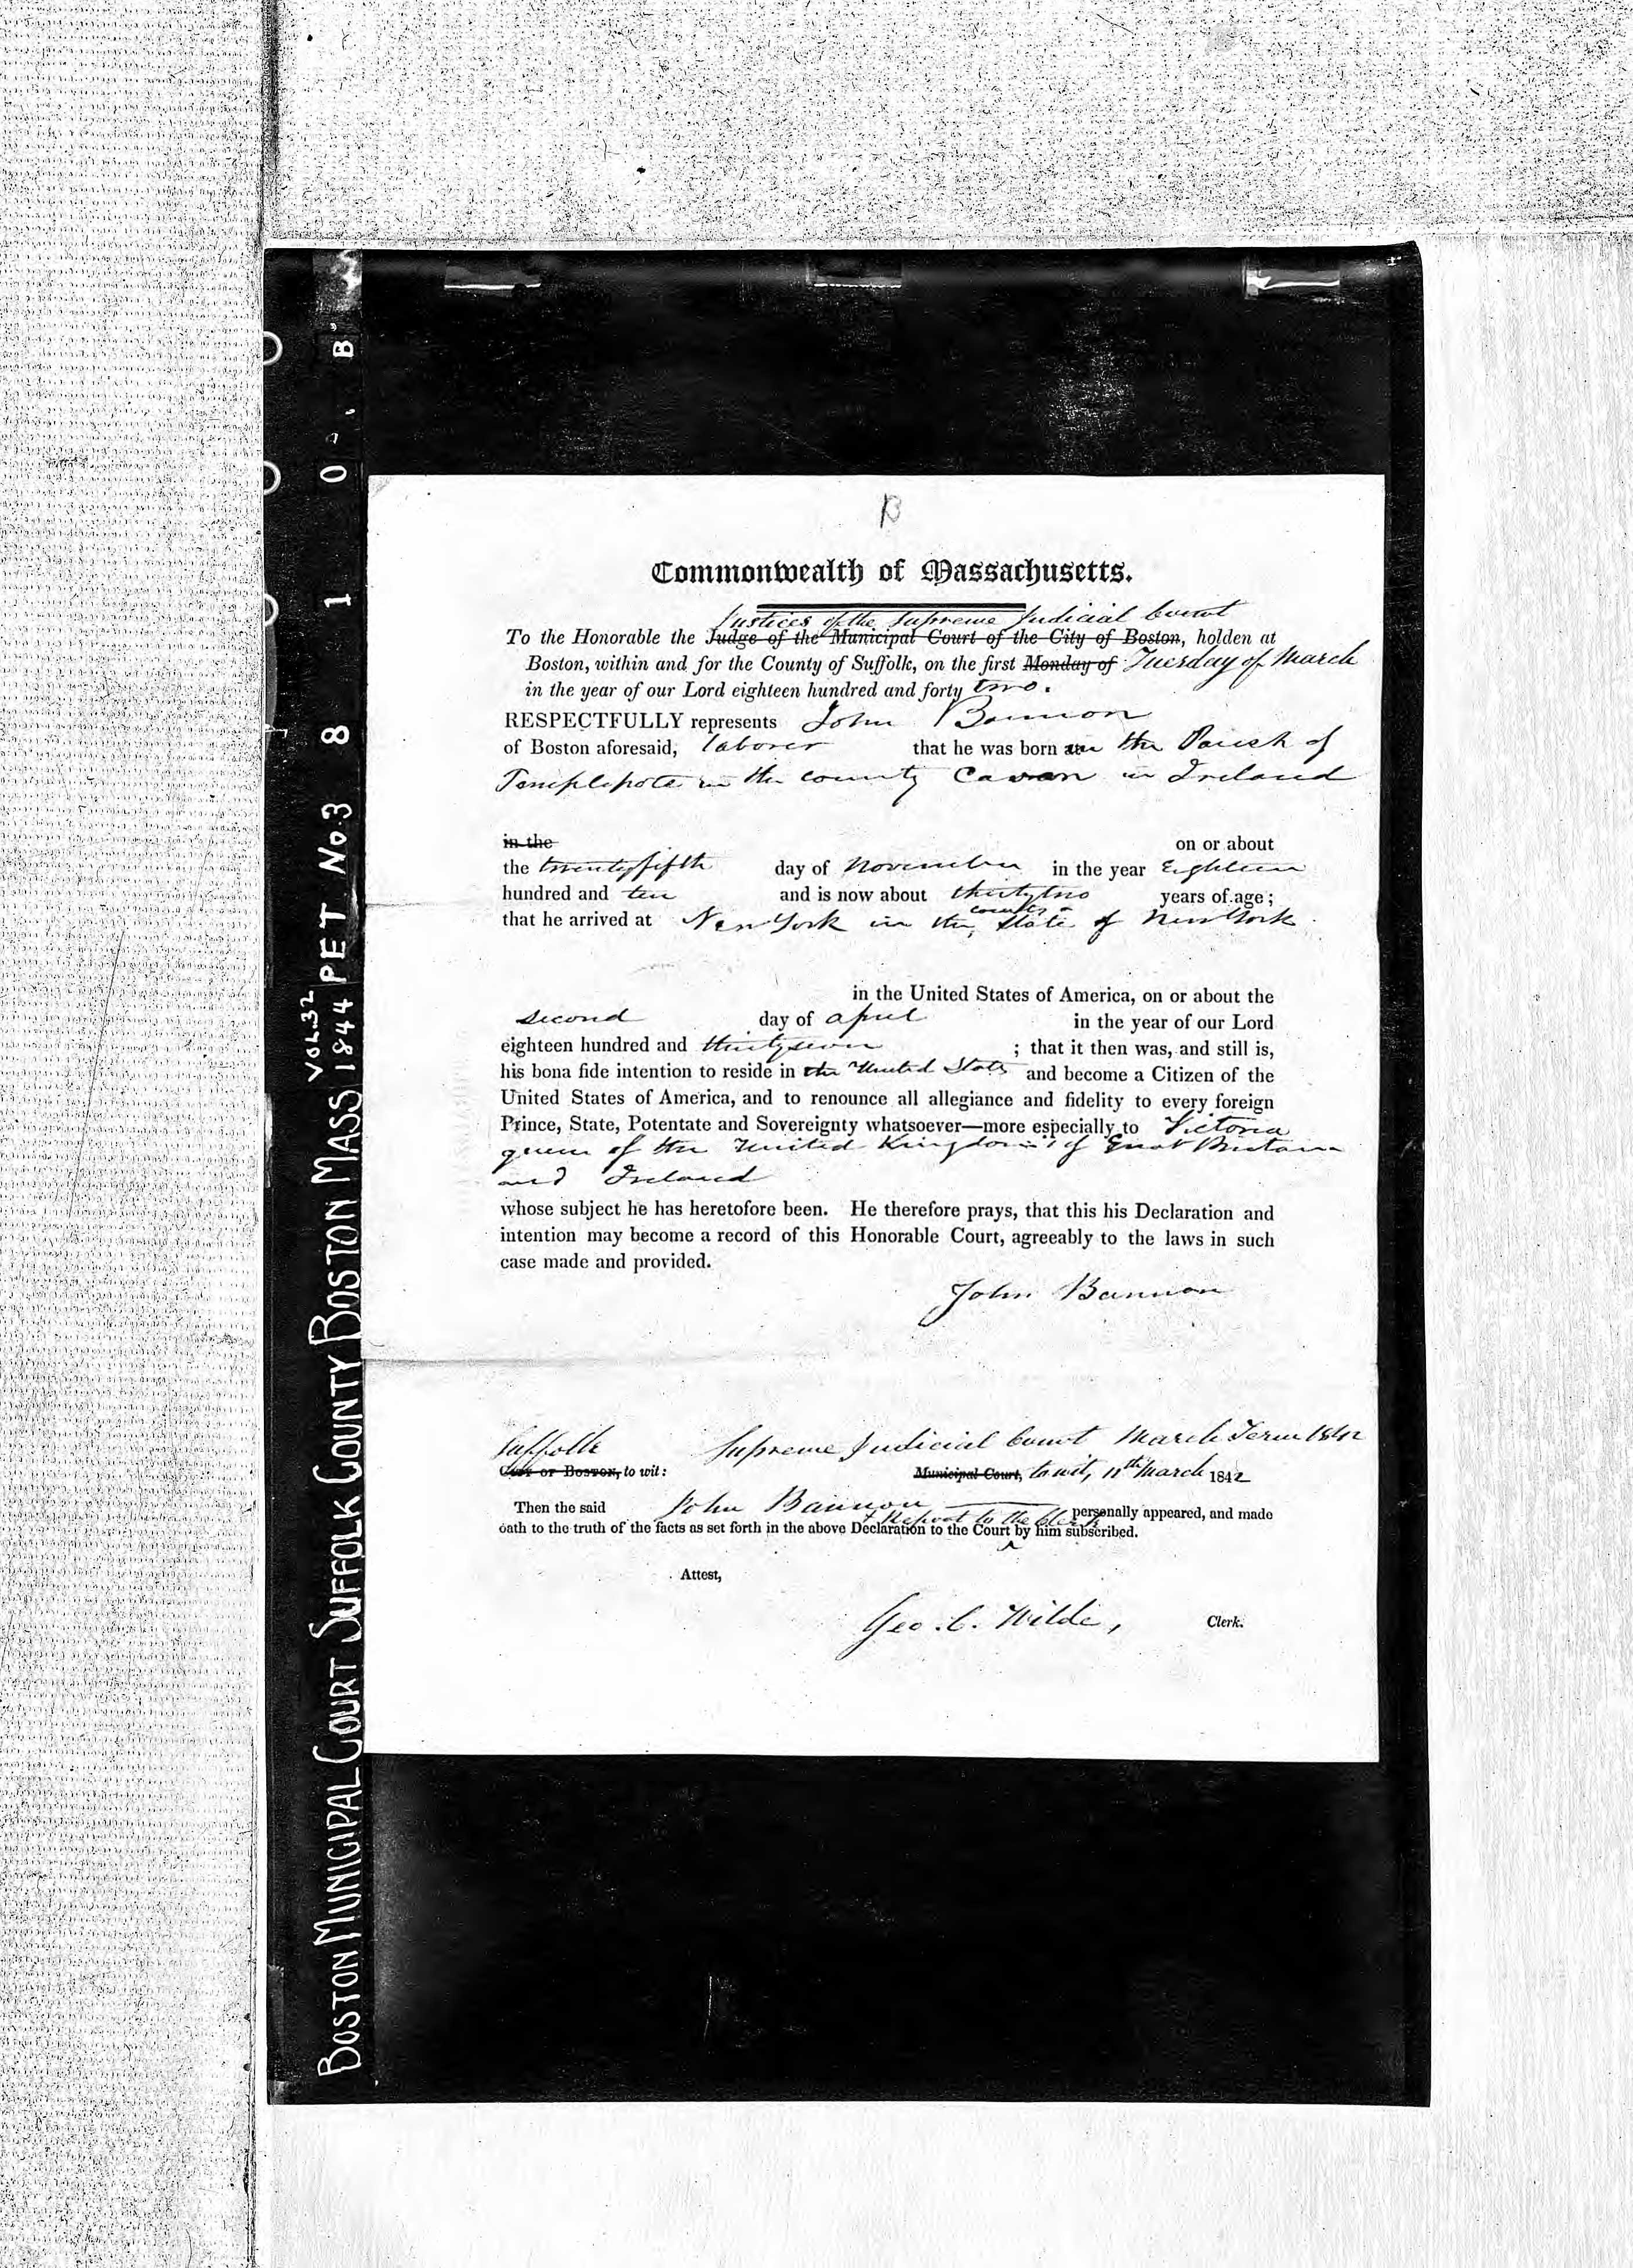 B
Commonwealth of Massachusetts.
Justices of the Supreme Judicial Court
To the Honorable the Judge of the Municipal Court of the City of Boston, holden at
Boston, within and for the County of Suffolk, on the first Monday of Tuesday of March
in the year of our Lord eighteen hundred and forty two.
RESPECTFULLY represents John Bannon
of Boston aforesaid, laborer that he was born in the Parish of
Templeport in the county Cavan in Ireland
in the on or about
the twentyfifth day of November in the year Eighteen
hundred and ten and is now about thirtytwo years of age;
county &
that he arrived at New York in the State of New York
in the United States of America, on or about the
second day of april in the year of our Lord
eighteen hundred and thirtyseven ; that it then was, and still is,
his bona fide intention to reside in the United States and become a Citizen of the
United States of America, and to renounce all allegiance and fidelity to every foreign
Prince, State, Potentate and Sovereignty whatsoever—more especially to Victoria
queen of the United Kingdom of Great Britain
and Ireland
whose subject he has heretofore been. He therefore prays, that this his Declaration and
intention may become a record of this Honorable Court, agreeably to the laws in such
case made and provided.
John Bannon
Suffolk Supreme Judicial Court March Term 1842
City of Boston, to wit: Municipal Court, to wit, 11th March 1842
Then the said John Bannon personally appeared, and made
& Report to the Clerk
oath to the truth of the facts as set forth in the above Declaration to the Court by him subscribed.
Attest,
Geo. C. Wilde, Clerk.
BOSTON MUNICIPAL COURT SUFFOLK COUNTY BOSTON MASS 1844 PET No. 3 8 1 0 B
VOL. 32